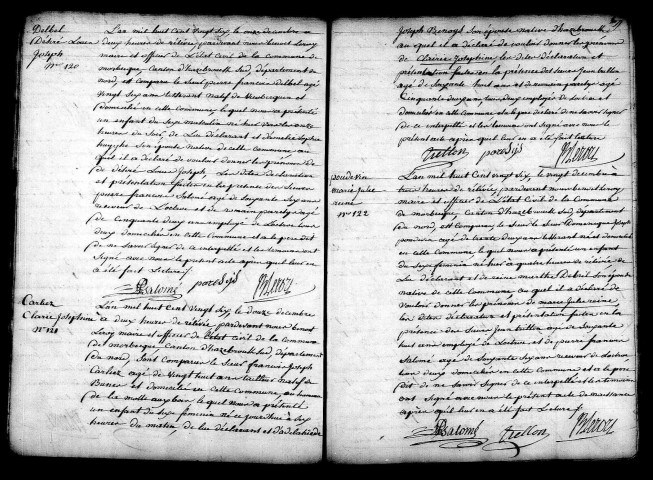 Delbel
Désiré Louis
Joseph
N° 120
L'an mil huit cent vingt six, le onze décembre à
deux heures de relevée, pardevant nous benoit Leroy
maire et officier de l'état Civil de la commune de
morbecque, Canton d'hazebrouck Sud, département du
nord, est comparu le Sieur pierre francois Delbel agé
vingt Six ans tisserand natif de
domicilié en cette commune, le quel nous a présenté
un enfant du Sexe masculin né hier
heures du Soir, de Lui déclarant et
Son épouse native de cette commune au
quel il a déclaré de vouloir donner les prénoms
de désiré Louis Joseph, Les dites déclaration
et présentation faites en la présence des Sieurs
pierre francois Salomé agé de Soixante Six ans
receveur de L'octroi et de romain
de Cinquante deux ans employé de L'octroi tous
deux domiciliés en cette commune et a le père dit
de ne Savoir Signer de ce interpellé et les témoins ont
Signé avec nous le présent acte après que leur en
a été fait Lecture
PSalomé BLeroy
Carliez
Clarie Josephine
N° 121
L'an mil huit cent vingt six le douze décembre
à deux heures de relevée, pardevant nous benoit
Leroy maire et officier de l'état civil de la commune
de morbecque Canton d'hazebrouck Sud, département
du nord, Sont comparus le Sieur francois Joseph
Carliez agé de vingt huit ans tailleur natif de
et domicilié en cette commune, au hameau
de la motte au bois le quel nous a présenté
un enfant du sexe féminin né ce jourd'hui à Six
heures du matin de lui déclarant et d'adelaïde
Joseph Son épouse native d'hazebrouck
au quel il a déclaré de vouloir donner les prénoms
de Clarie Josephine les dites déclaration et
présentation faites en la présence des Sieurs Jean
agé de Soixante huit ans et de romain agé
Cinquante deux ans tous deux employés de l'octroi et
domiciliés en cette Commune et a le père déclaré de ne savoir signer
de ce interpellé et les témoins ont Signé avec nous le
présent acte après qu'il leur en a été fait lecture
BLeroy
marie Julie
reine
N° 122
L'an mil huit cent vingt six, le vingt décembre à
heures de relevée, pardevant nous benoit Leroy
maire et officier de l'état Civil de la Commune
de morbecque, Canton d'hazebrouck Sud, département
du nord, est Comparu le Sieur
agé de trente deux ans tisserand né et domicilié
en cette Commune, le quel nous a présenté un enfant
du Sexe féminin né hier à quatre heures du Soir de
Lui déclarant et de reine Son épouse
native de cette Commune au quel il a déclaré de
vouloir donner les prénoms de marie Julie reine
Les dites déclaration et présentation faites en la
présence des Sieurs Jean agé de Soixante
huit ans employé de L'octroi et de pierre francois
Salomé agé de Soixante Six ans receveur de L'octroi
tous deux domiciliés en cette Commune et a le père
dit de ne Savoir Signer de ce interpellé et les témoins
ont Signé avec nous le présent acte de naissance
après qu'il leur en a été fait Lecture
PSalomé BLeroy